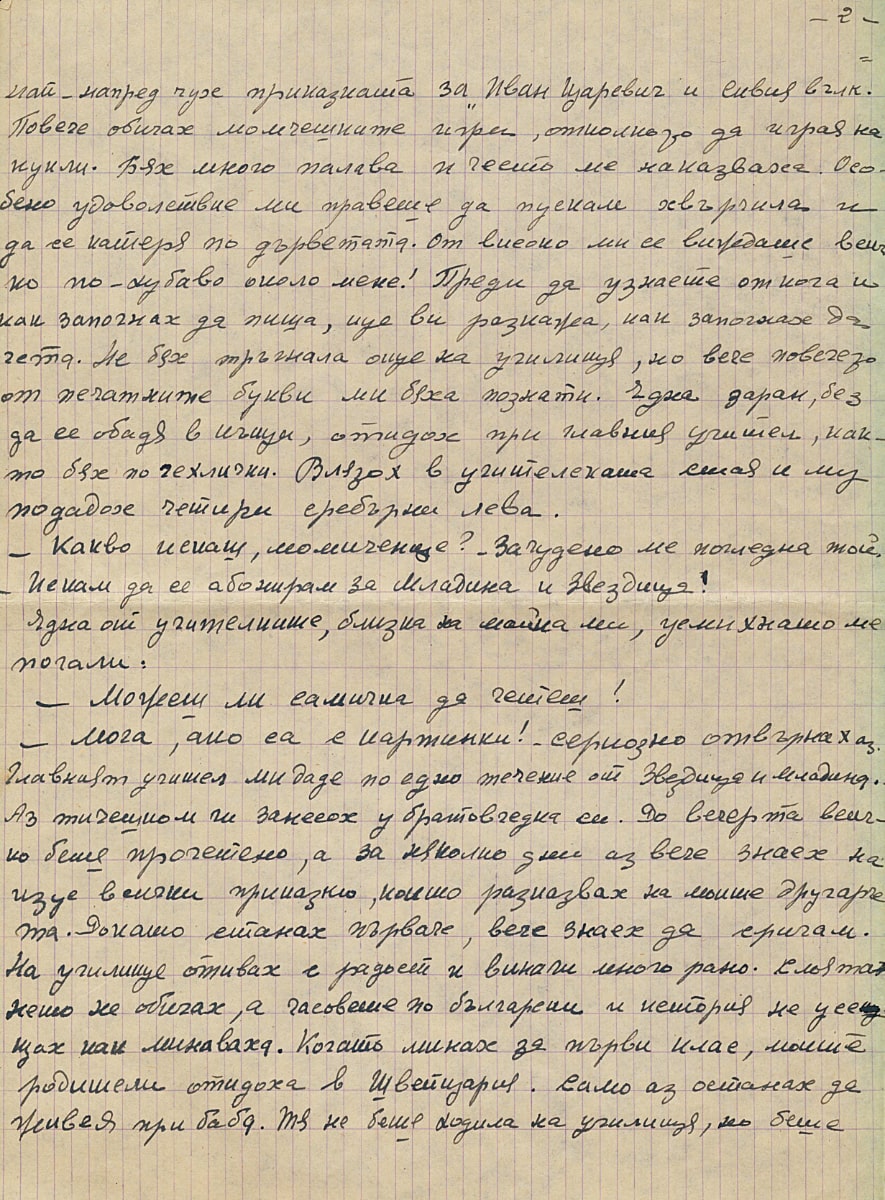 – 2 –
най-напред чух приказката за „Иван Царевич и сивия вълк.
Повече обичах момчешките игри, отколкото да играя на
кукли. Бях много палава и често ме наказваха. Осо-
бено удоволствие ми правеше да пускам хвърчила и
да се катеря по дърветата. От високо ми се виждаше всич-
ко по-хубаво около мене! Преди да узнаете откога и
как започнах да пиша, ще ви разкажа, как започнах да
чета. Не бях тръгнала още на училище, но вече повечето
от печатните букви ми бяха познати. Една заран, без
да се обадя в къщи, отидох при главния учител, как-
то бях по чехлички. Влязох в учителската стая и му
подадох четири сребърни лева.
– Какво искаш, момиченце? – Зачудено ме погледна той.
– Искам да се абонирам за Младина и Звездица!
Една от учителките, близка на майка ми, усмихнато ме
погали:
– Можеш ли самичка да четеш!
– Мога, ако са с картинки! – сериозно отвърнах аз.
Главният учител ми даде по едно течение от Звездица и Младина.
Аз тичешком ги занесох у братовчедка си. До вечерта всич-
ко беше прочетено, а за няколко дни аз вече знаех на
изус всички приказки, които разказвах на моите другарче
та. Докато станах първаче, вече знаех да сричам.
На училище отивах с радост и винаги много рано. Смята
нето не обичах, а часовете по български и история не усе
щах как минаваха. Когато минах за първи клас, моите
родители отидоха в Швейцария. Само аз останах да
живея при баба. Тя не беше ходила на училище, но беше